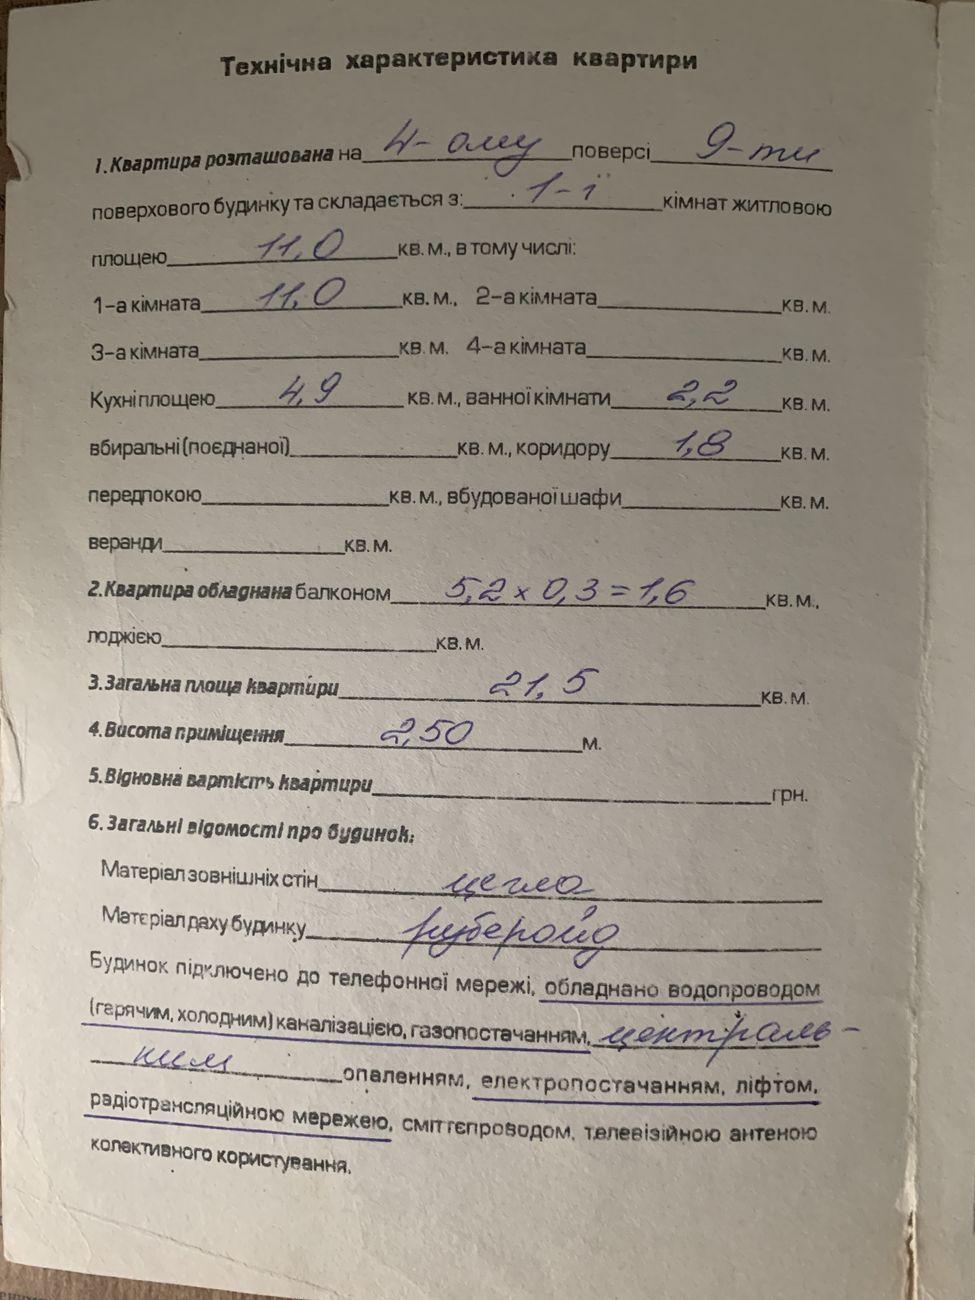 Технічна характеристика квартири
1. Квартира розташована на 4-ому поверсі 9-ти
поверхового будинку та складається з: 1-ї кімнат житловою
площею 11,0 кв. м., в тому числі:
1-а кімната 11,0 кв. м., 2-а кімната кв. м.
3-а кімната кв. м. 4-а кімната кв. м.
Кухні площею 4,9 кв. м., ванної кімнати 2,2 кв. м.
вбиральні (поєднаної) кв. м., коридору 1,8 кв. м.
передпокою кв. м., вбудованої шафи кв. м.
веранди кв. м.
2. Квартира обладнана балконом 5,2 x 0,3 = 1,6 кв. м.,
лоджією кв. м.
3. Загальна площа квартири 21,5 кв. м.
4. Висота приміщення 2,50 м.
5. Відновна вартість квартири грн.
6. Загальні відомості про будинок:
Матеріал зовнішніх стін цегла
Матеріал даху будинку рубероїд
Будинок підключено до телефонної мережі, обладнано водопроводом
(гарячим, холодним) каналізацією, газопостачанням, централь-
ним опаленням, електропостачанням, ліфтом,
радіотрансляційною мережею, сміттєпроводом, телевізійною антеною
колективного користування.